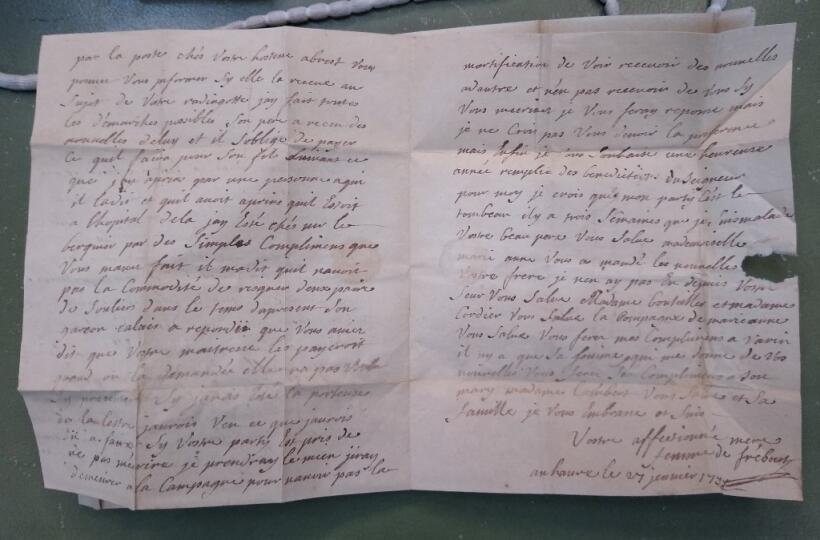 par la poste chés Vostre hostesse
pouvez Vous informer Sy elle la receue au
Sujet de Votre radingotte jay fait toutes
les démarches posibles Son pere a receu des
nouvelles deluy et il Soblige de payer
ce quil faira pour Son fils suivant ce
que jay apris par une personne aqui
il ladit et quil avoit apris quil Estoit
a lhopital dela jay Esté chés mr le
berquier par des Simples Complimens que
Vous mavez fait il madit quil navoit
pas la Commodité de deux paire
de Souliers dans le tems dapresent Son
garson a repondit que Vous aviez
dit que Votre maitresse les payeroit
quand on la demandée elle na pas
Sy javais Esté la porteuse
de la lestre jaurois Veu ce que jaurois
a faire Sy Vostre party Est pris de
ne pas mecrire je prendray le mien jiray
demeurer a la Campagne pour navoir pas la
mortification de Voir recevoir des nouvelles
adautre et nen pas recevoir de Vous Sy
Vous mecrivez je Vous feray reponse mais
je ne Crois pas Vous la
mais Enfin je Vous Souhaite une heureuse
année remplie des benedictions du Seigneur
pour moy je crois que mon party Est le
tombeau il y a trois Semaines que je Suis malade
Vostre beau pere Vous Salue mademoiselle
marie anne Vous a mandé les nouvelles
Votre frere je nen ay pas Eu depuis Vostre
Seur Vous Salue Madame bouteiller et madame
Cordier Vous Salue la Compagne de marie anne
Vous Salue Vous ferez mes Complimens a
il ny a que Sa femme qui me donne de Vos
nouvelles Vous ferez Ses Complimens a Son
mary madame Lambert Vous Salue et Sa
famille je Vous Embrasse et Suis
Vostre affectionné mere
femme de frébourg
au havre le 27 janvier